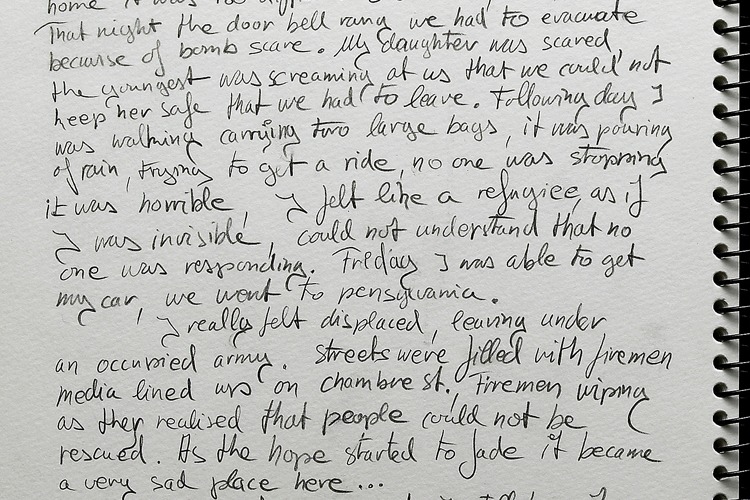 home it was
That night the door bell rang we had to evacuate
because of bomb scare. My daughter was scared,
the youngest was screaming at us that we could not
keep her safe that we had to leave. Following day I
was walking carrying two large bags, it was pouring
of rain, trying to get a ride, no one was stopping
it was horrible, I felt like a refugiee, as if
I was invisible, could not understand that no
one was responding. Friday I was able to get
my car, we went to pensylvania.
I really felt displaced, leaving under
an occupied army. Streets were filled with firemen
media lined up on chambre st. Firemen wiping
as they realised that people could not be
rescued. As the hope started to fade it became
a very sad place here ...